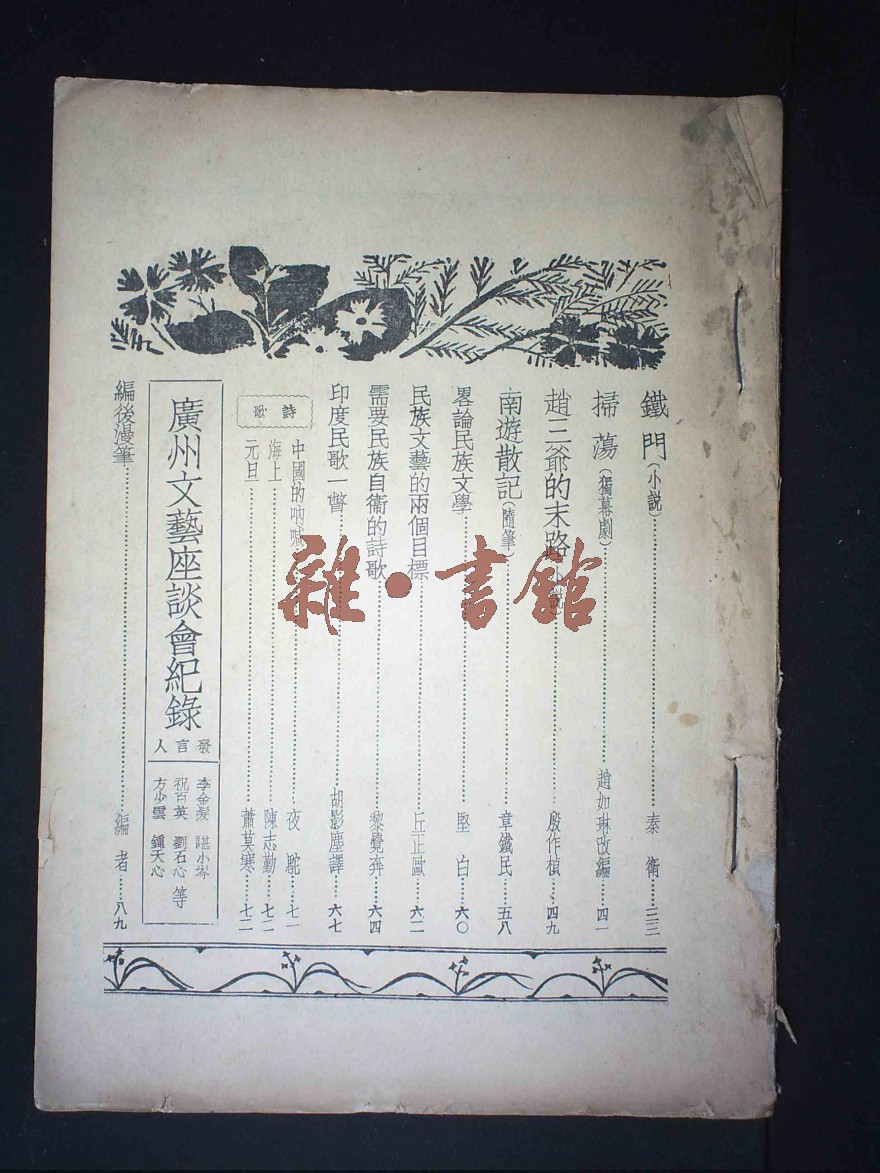 鐵門（小說）……秦衛……三三
掃蕩（獨幕劇）……趙如琳改編……四一
趙三爺的末路（小說）……殷作楨……四九
南遊散記（隨筆）……章鐵民……五八
畧論民族文學……堅白……六〇
民族文藝的兩個目標……丘正歐……六二
需要民族自衞的詩歌……黎覺奔……六四
印度民歌一瞥……胡影塵譯……六七
詩歌
中國的吶喊……夜駝……七一
海上……陳志勤……七二
元旦……蕭莫寒……七二
廣州文藝座談會紀錄
發言人
李金髮 諶小岑
祝百英 劉石心
方少雲 鍾天心 等
編後漫筆……編者……八九
雜·書館